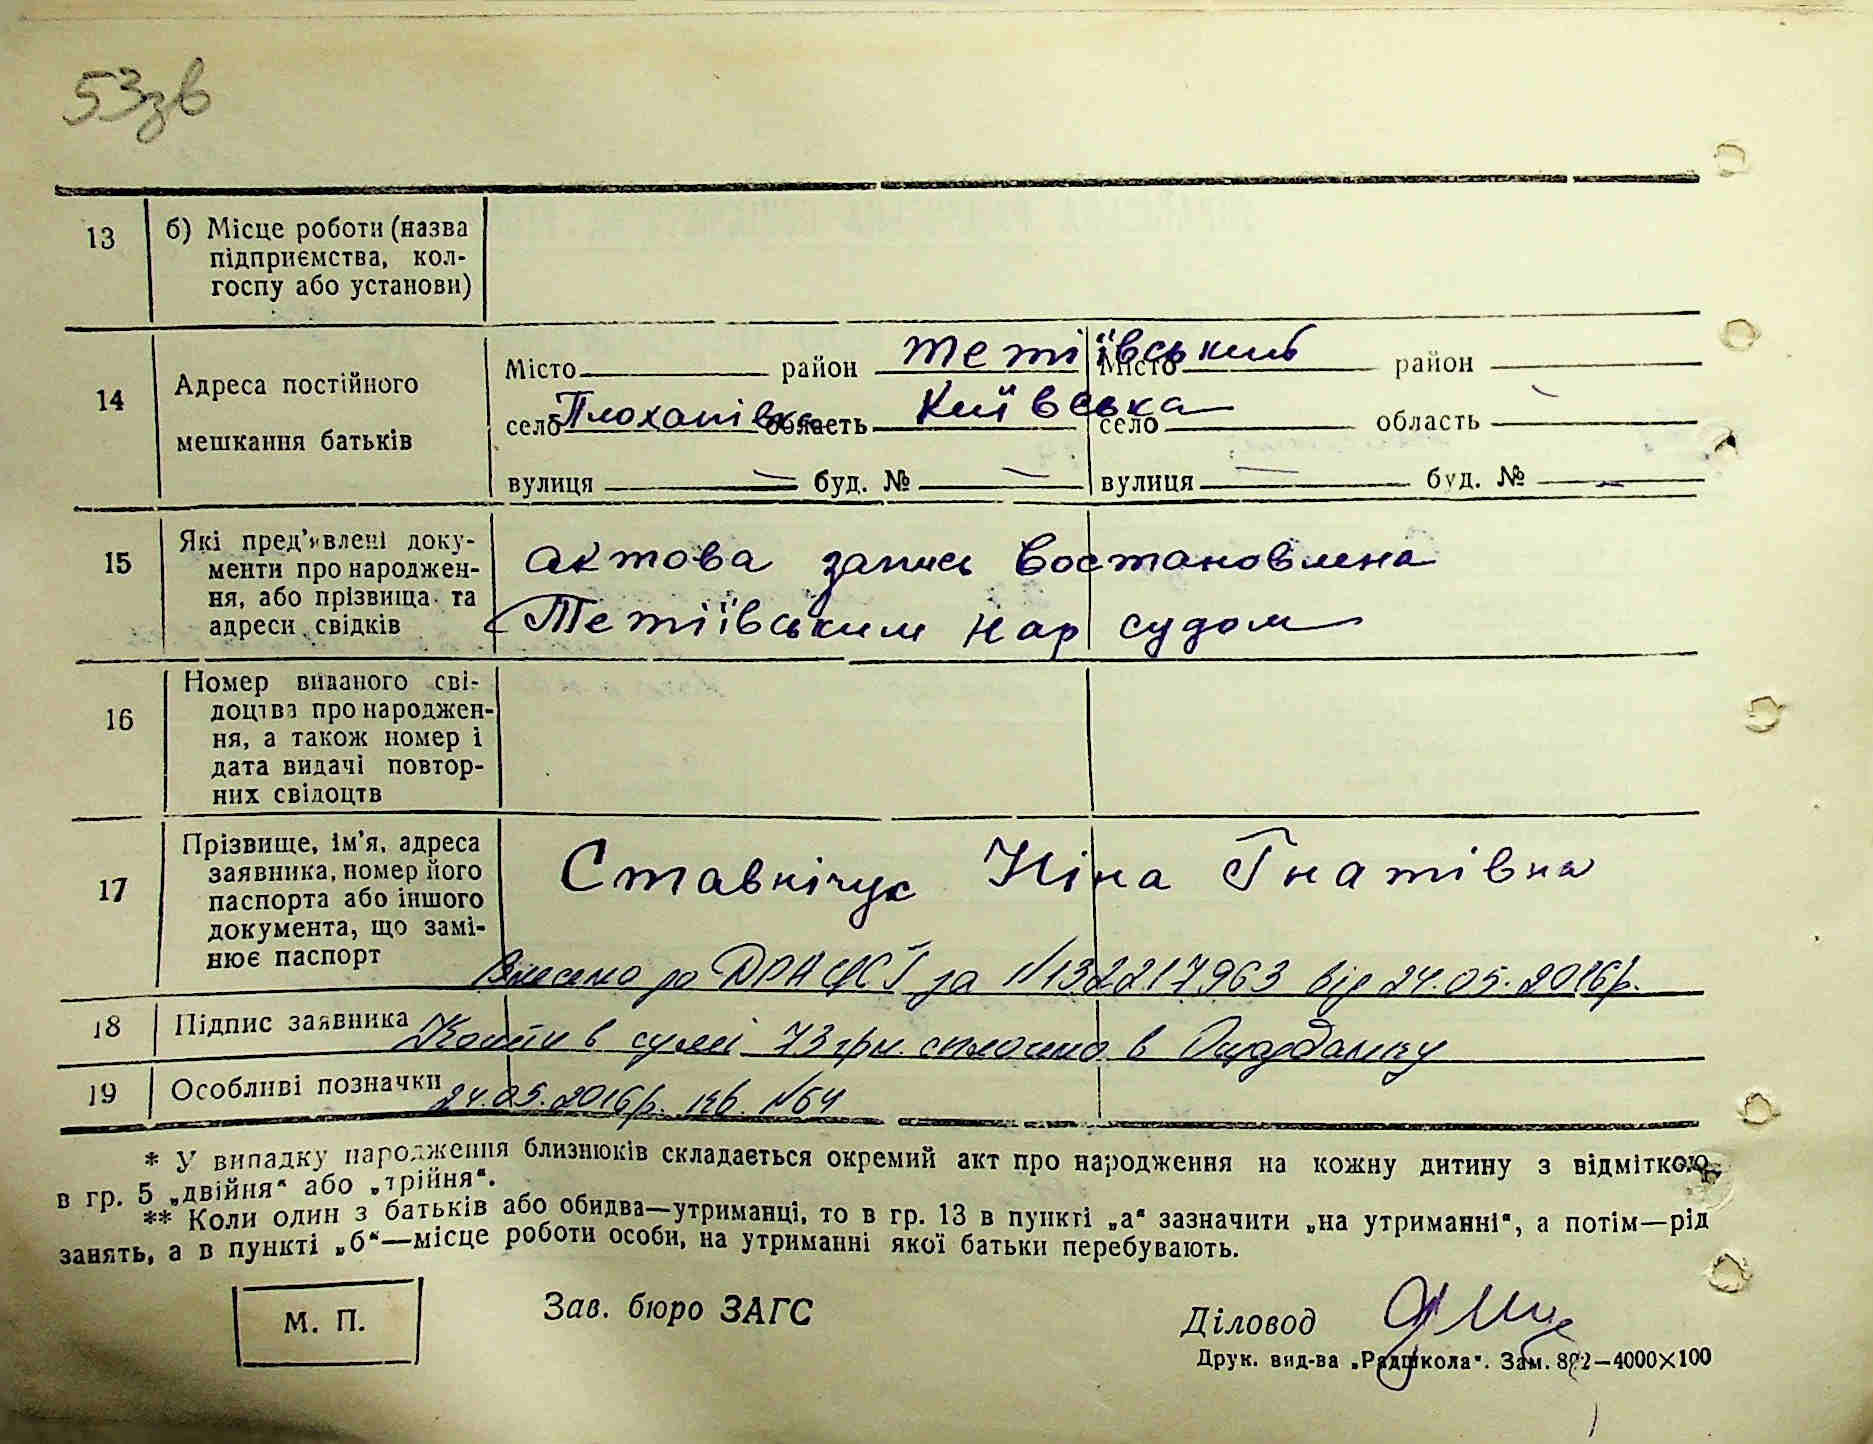 53зв
13 б) Місце роботи (назва
підприємства, кол-
госпу або установи)
14 Адреса постійного
мешкання батьків
Місто район Тетіївський Місто район
село Плоханівка область Київська село область
вулиця — буд. № — вулиця — буд. № —
15 Які пред'явлені доку-
менти про народжен-
ня, або прізвища та
адреси свідків
актова запись востановлена
Тетіївським нар судом
16 Номер виданого сві-
доцтва про народжен-
ня, а також номер і
дата видачі повтор-
них свідоцтв
17 Прізвище, ім'я, адреса
заявника, номер його
паспорта або іншого
документа, що замі-
нює паспорт
Ставнічук Ніна Гнатівна
Внесено до ДРАЦСГ за №132217963 від 24.05.2016р.
18 Підпис заявника
Кошти в сумі 73 грн. сплочено в Ощадбанку
19 Особливі позначки
24.05.2016р. кв. №64
* У випадку народження близнюків складається окремий акт про народження на кожну дитину з відміткою
в гр. 5 „двійня“ або „трійня“.
** Коли один з батьків або обидва—утриманці, то в гр. 13 в пункті „а“ зазначити „на утриманні“, а потім—рід
занять, а в пункті „б“—місце роботи особи, на утриманні якої батьки перебувають.
М. П.
Зав. бюро ЗАГС
Діловод
Друк. вид-ва „Радшкола“. Зам. 802—4000×100